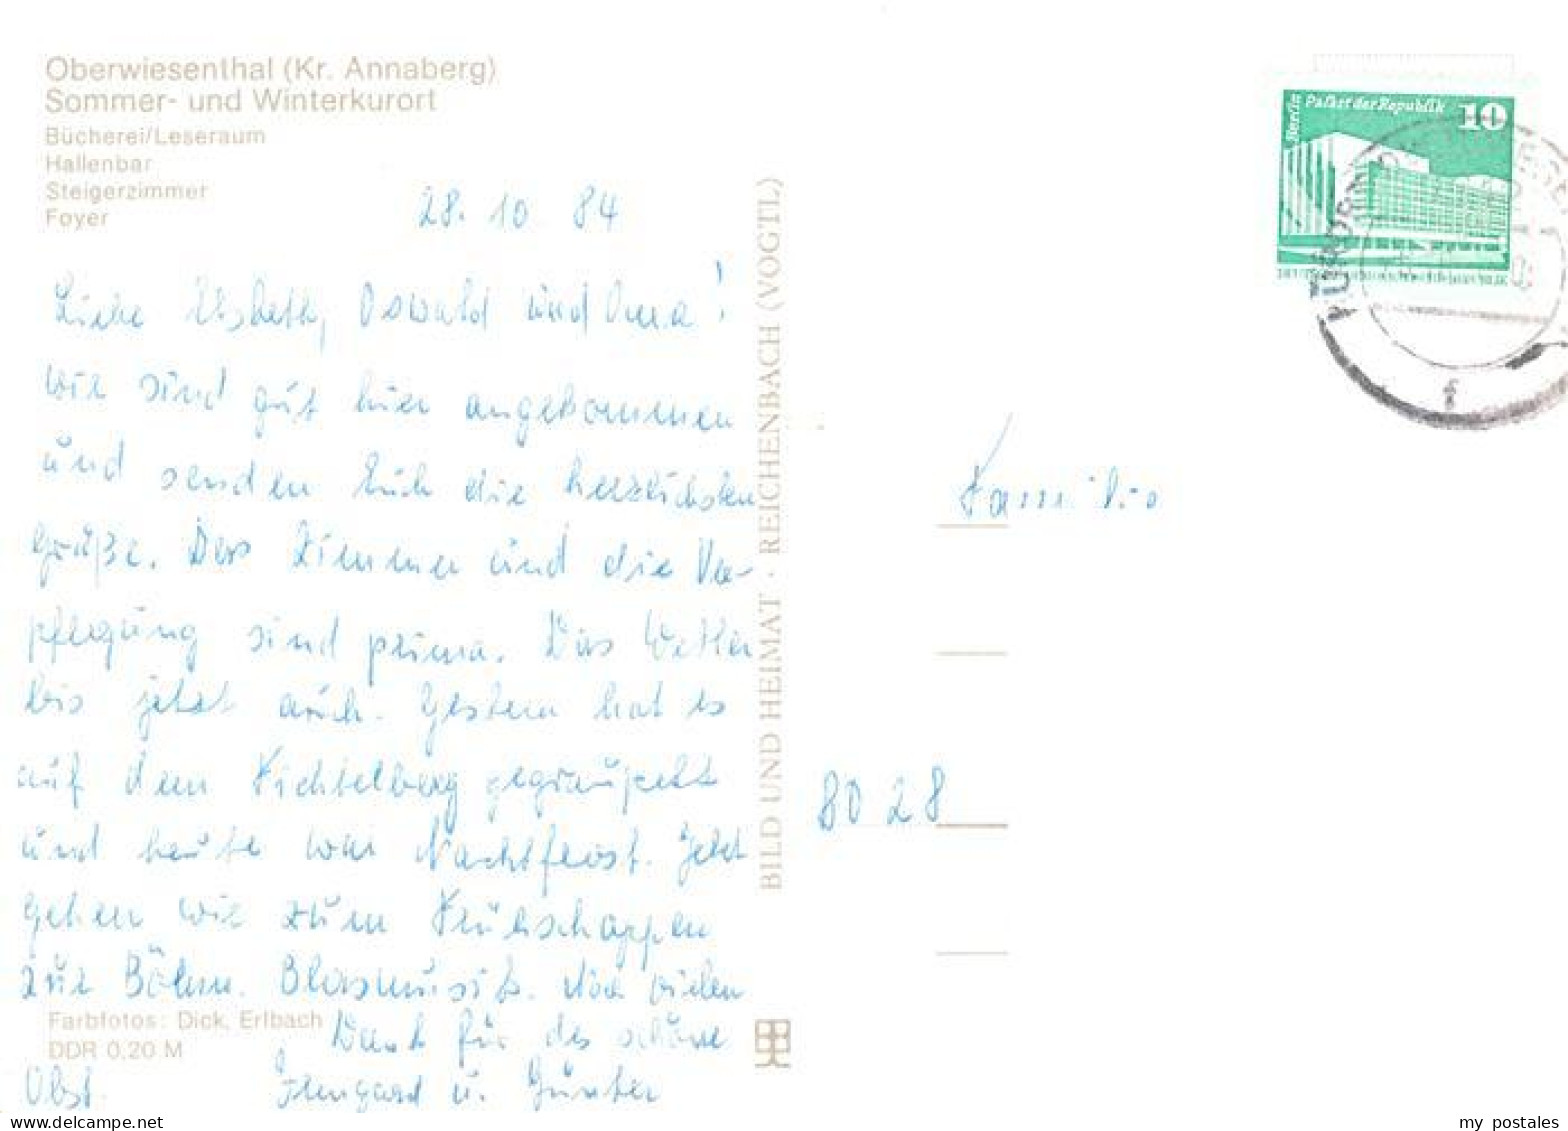 Oberwiesenthal (Kr. Annaberg)
Sommer- und Winterkurort
Bücherei/Leseraum
Hallenbar
Steigerzimmer
Foyer
28. 10 84
Liebe Elsbeth, Oswald und Oma!
Wir sind gut hier angekommen
und senden Euch die herzlichsten
Grüße. Das Zimmer und die Ver-
pflegung sind prima. Das Wetter
bis jetzt auch. Gestern hat es
auf dem Fichtelberg gegraupelt
und heute war Nachtfrost. Jetzt
gehen wir zum Frühschoppen
zur Böhm. Blasmusik. Noch vielen
Dank für das schöne
Obst. Irmgard u. Günter
Farbfotos: Dick, Erlbach
DDR 0,20 M
BILD UND HEIMAT · REICHENBACH (VOGTL)
Berlin Palast der Republik 10
DDR
f
Familie
8028
my postales